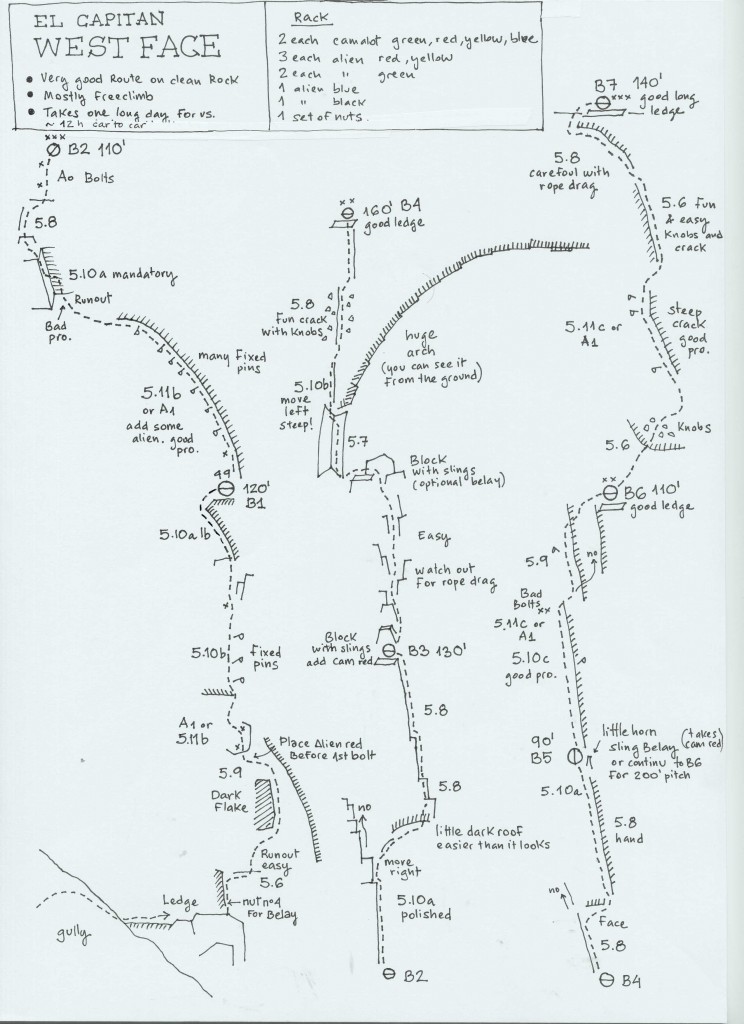 EL CAPITAN
WEST FACE
• Very good Route on clean Rock
• Mostly freeclimb
• Takes one long day for us.
~ 12h car to car
Rack
2 each camalot green, red, yellow, blue
3 each alien red, yellow
2 each " green
1 alien blue
1 " black
1 set of nuts.
xxx
B2 110'
A0 Bolts
5.8
5.10a mandatory
Runout
Bad
pro.
many fixed
pins
5.11b
or A1
add some
alien. good
pro.
120'
B1
5.10a/b
5.10b
Fixed
pins
A1 or
5.11b
Place Alien red
Before 1st bolt
5.9
Dark
Flake
Runout
easy
5.6
nut n°4
For Belay
Ledge
gully
xx
160' B4
good ledge
5.8
Fun crack
with Knobs
huge
arch
(you can see it
from the ground)
5.10b
move
left
steep!
5.7
Block
with slings
(optional belay)
Easy
watch out
for rope drag
Block
with slings
add cam red
B3 130'
5.8
5.8
no
little dark roof
easier than it looks
move
right
5.10a
polished
B2
B7 140'
xxx good long
ledge
5.8
carefoul with
rope drag
5.6 Fun
& easy
Knobs and
crack
steep
crack
good
pro.
5.11c or
A1
Knobs
5.6
xx
B6 110'
good ledge
5.9
no
Bad
Bolts
xx
5.11c or
A1
5.10c
good pro.
90'
B5
little horn
sling Belay (takes
cam red)
or continu to B6
for 200' pitch
5.10a
5.8
hand
no
Face
5.8
B4